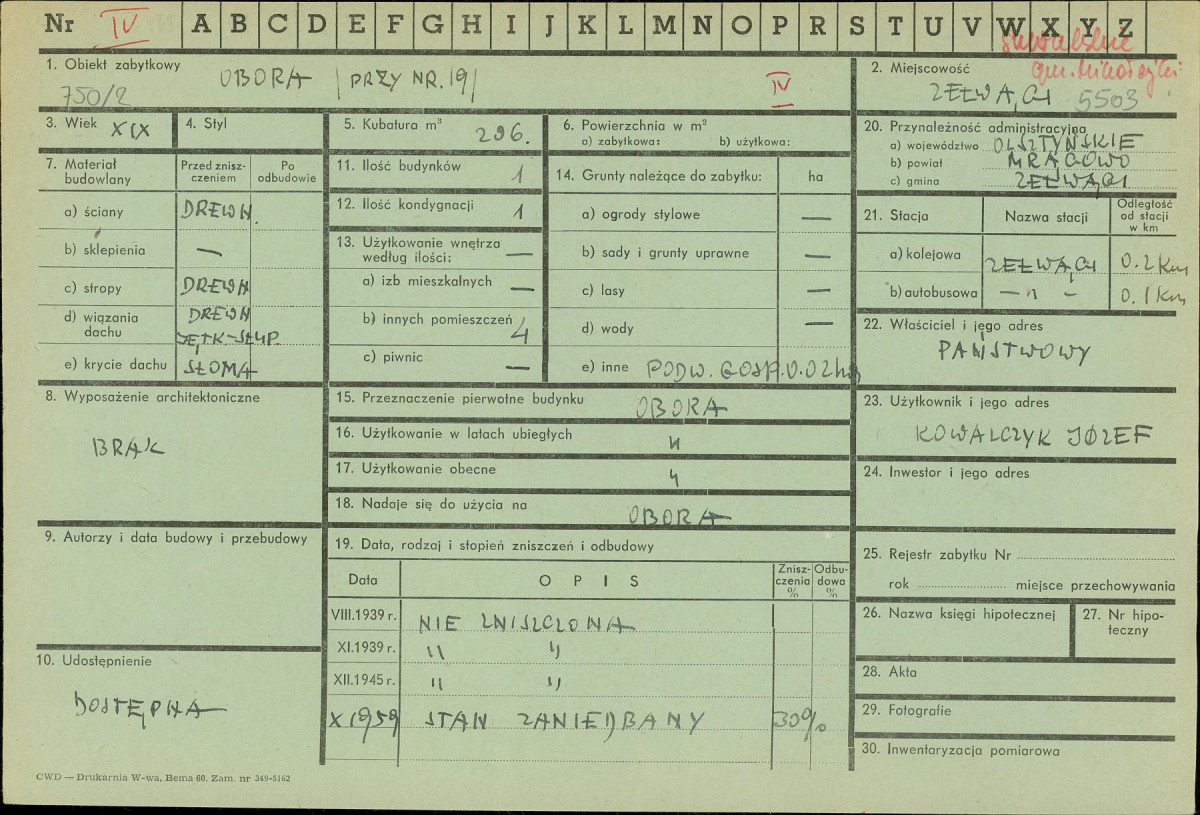 Nr IV A B C D E F G H I J K L M N O P R S T U V W X Y Z
suwalskie
gm. Mikołajki
1. Obiekt zabytkowy OBORA /PRZY NR. 19/
750/2
IV
2. Miejscowość
ZEŁWĄGI 5503
3. Wiek XIX
4. Styl
5. Kubatura m³ 296.
6. Powierzchnia w m²
a) zabytkowa: b) użytkowa:
20. Przynależność administracyjna
a) województwo OLSZTYŃSKIE
b) powiat MRĄGOWO
c) gmina ZEŁWĄGI
7. Materiał budowlany
Przed zniszczeniem
Po odbudowie
a) ściany DREWN.
b) sklepienia —
c) stropy DREWN
d) wiązania dachu DREWN
JĘTK-SŁUP.
e) krycie dachu SŁOMA
11. Ilość budynków 1
12. Ilość kondygnacji 1
13. Użytkowanie wnętrza według ilości: —
a) izb mieszkalnych —
b) innych pomieszczeń 4
c) piwnic —
14. Grunty należące do zabytku: ha
a) ogrody stylowe —
b) sady i grunty uprawne —
c) lasy —
d) wody —
e) inne PODW. GOSP. 0.02 ha
21. Stacja Nazwa stacji Odległość od stacji w km
a) kolejowa ZEŁWĄGI 0.2 Km
b) autobusowa — " — 0.1 Km
22. Właściciel i jego adres
PAŃSTWOWY
8. Wyposażenie architektoniczne
BRAK
15. Przeznaczenie pierwotne budynku OBORA
16. Użytkowanie w latach ubiegłych "
17. Użytkowanie obecne "
18. Nadaje się do użycia na OBORA
23. Użytkownik i jego adres
KOWALCZYK JÓZEF
24. Inwestor i jego adres
9. Autorzy i data budowy i przebudowy
19. Data, rodzaj i stopień zniszczeń i odbudowy
Data OPIS Zniszczenia % Odbudowa %
VIII.1939 r. NIE ZNISZCZONA
XI.1939 r. " "
XII.1945 r. " "
X 1959 STAN ZANIEDBANY 30%
25. Rejestr zabytku Nr
rok miejsce przechowywania
26. Nazwa księgi hipotecznej
27. Nr hipoteczny
10. Udostępnienie
DOSTĘPNA
28. Akta
29. Fotografie
30. Inwentaryzacja pomiarowa
CWD — Drukarnia W-wa, Bema 60. Zam. nr 349-5162